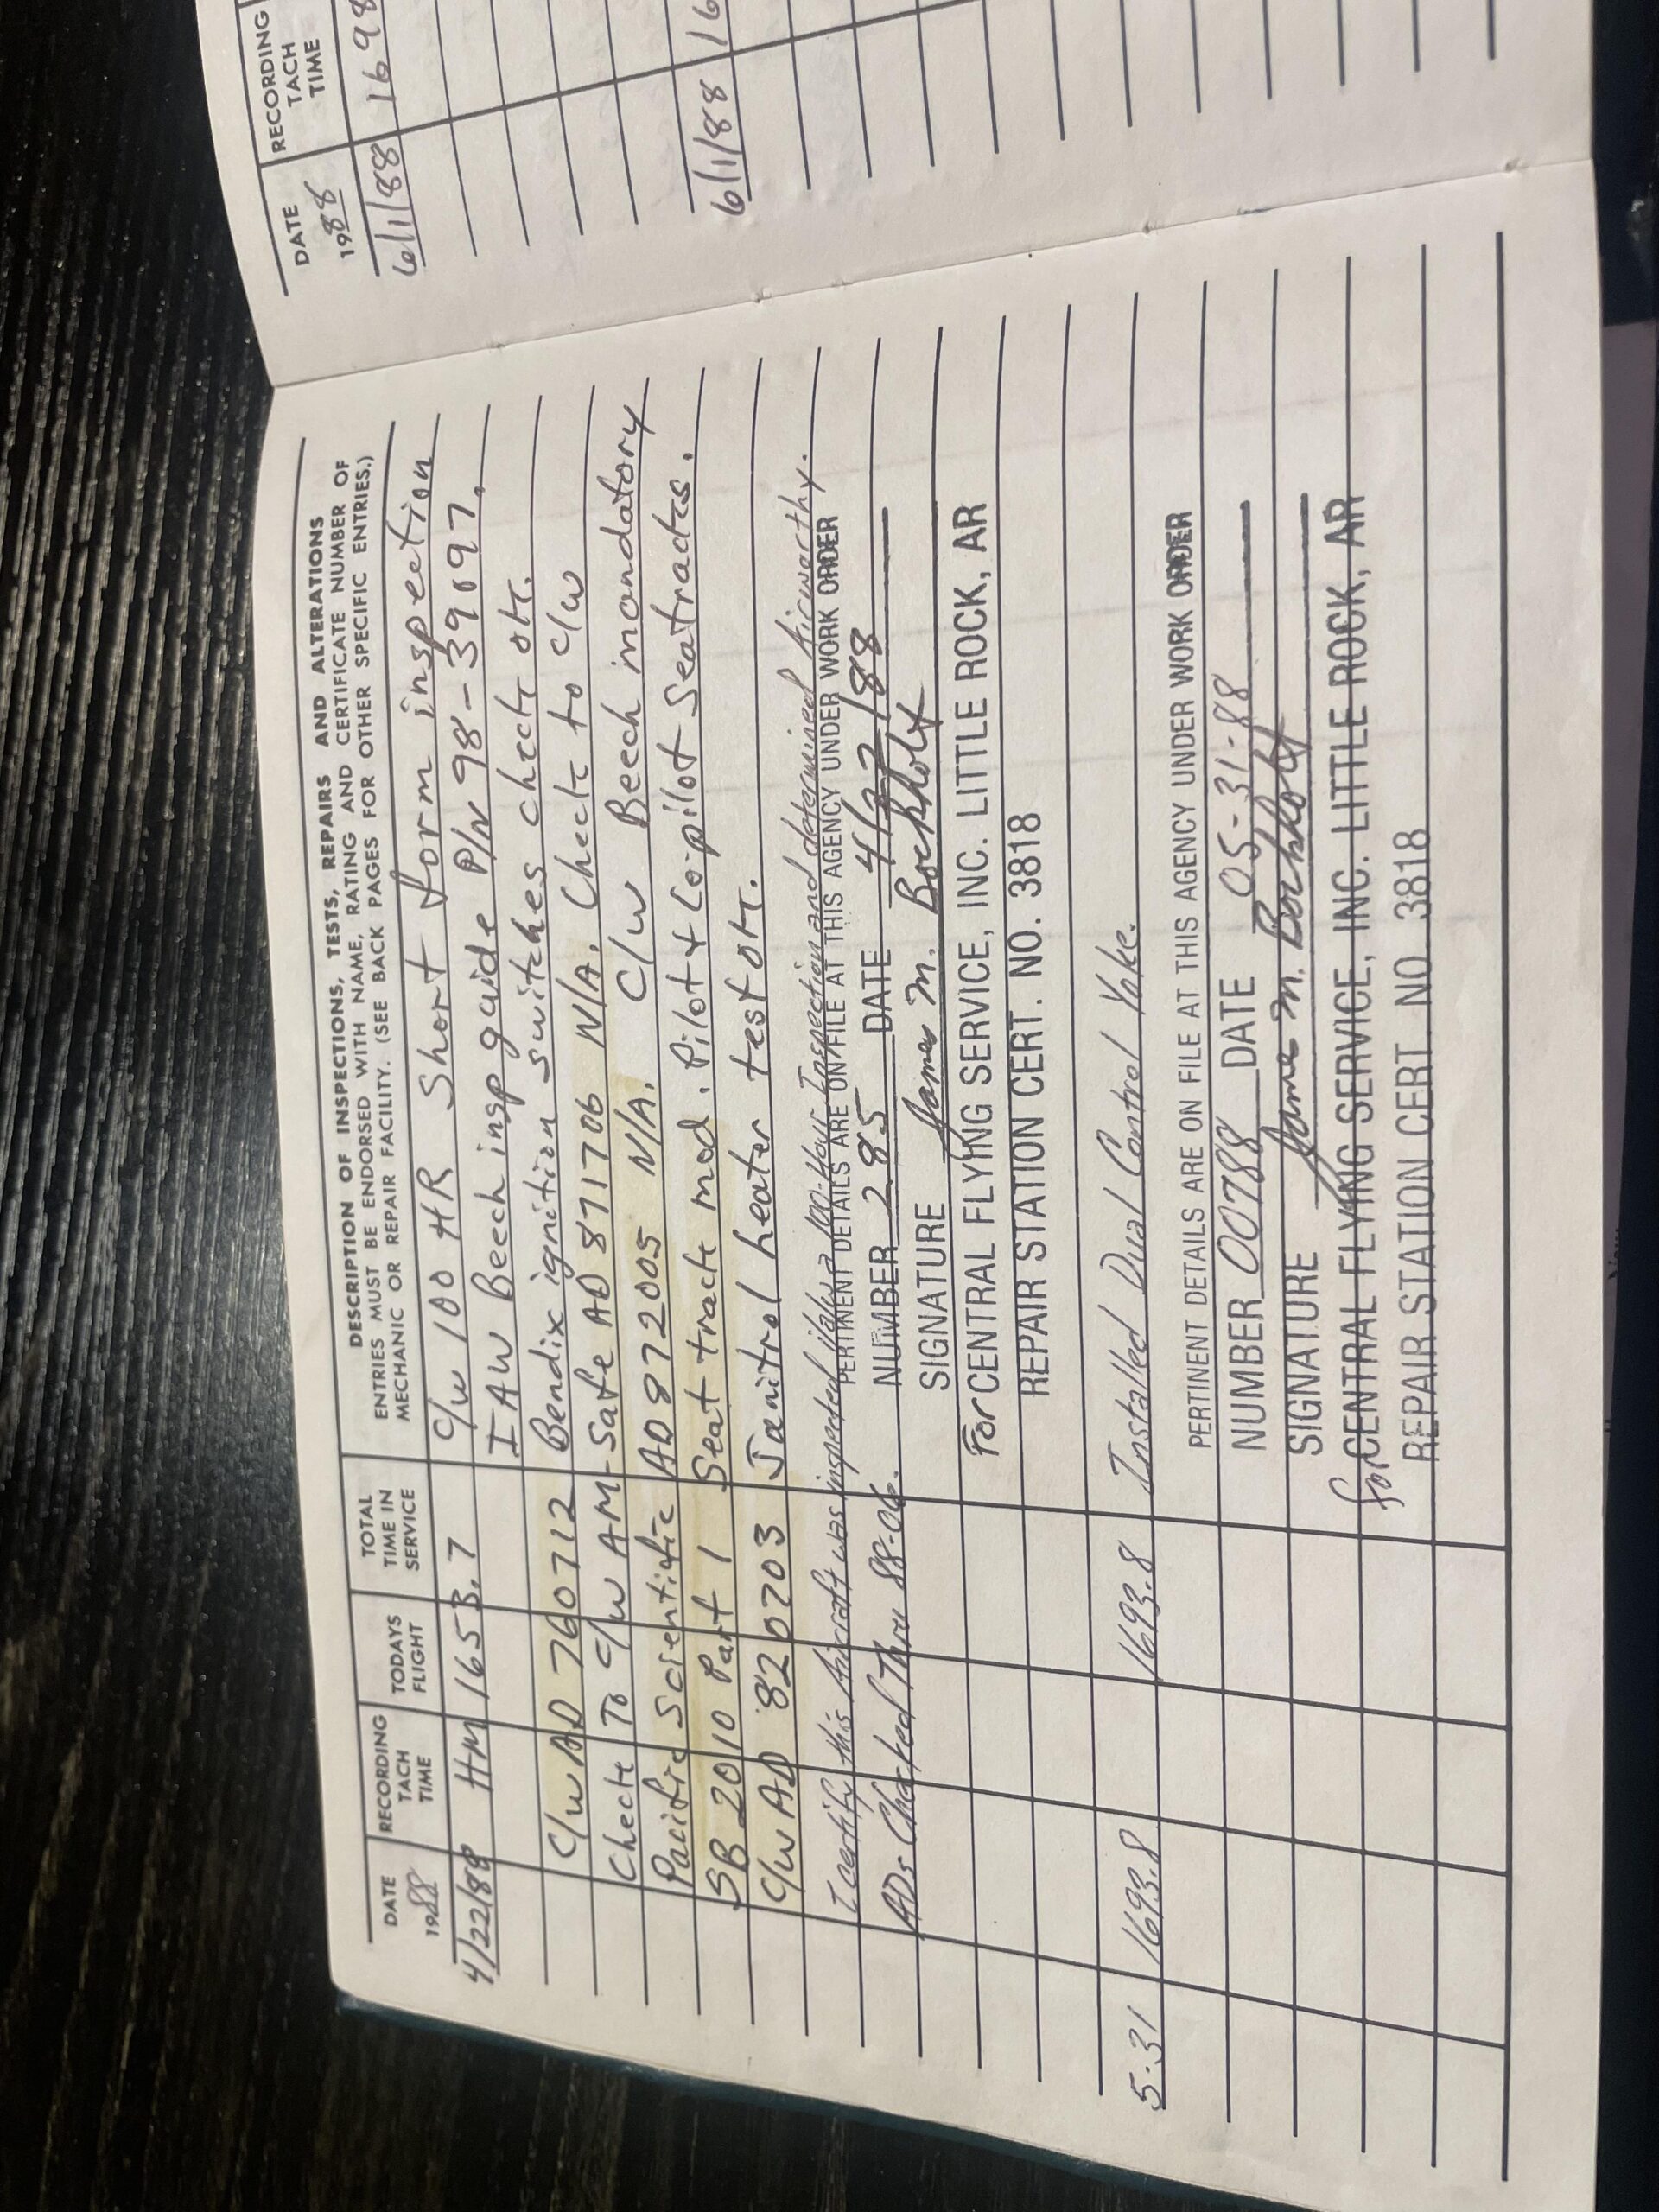 DESCRIPTION OF INSPECTIONS, TESTS, REPAIRS AND ALTERATIONS
DATE 1988 RECORDING TACH TIME TODAYS FLIGHT TOTAL TIME IN SERVICE
ENTRIES MUST BE ENDORSED WITH NAME, RATING AND CERTIFICATE NUMBER OF
MECHANIC OR REPAIR FACILITY. (SEE BACK PAGES FOR OTHER SPECIFIC ENTRIES.)
4/22/88 HM 1653.7 C/W 100 HR Short form inspection
IAW Beech insp guide P/N 98-39097.
C/W AD 760712 Bendix ignition switches check ok.
Check To C/W AM-Safe AD 871706 N/A. Check to C/W
Pacific Scientific AD 872005 N/A. C/W Beech mandatory
SB 2010 Part 1 Seat track mod. Pilot & Co-pilot Seatracks.
C/W AD 820703 Janitrol heater test ok.
I certify this Aircraft was inspected 100-Hour Inspection and determined Airworthy.
PERTINENT DETAILS ARE ON FILE AT THIS AGENCY UNDER WORK ORDER
ADs Checked Thru 88-06.
NUMBER 285 DATE 4/22/88
SIGNATURE James M. Bockholt
For CENTRAL FLYING SERVICE, INC. LITTLE ROCK, AR
REPAIR STATION CERT. NO. 3818
5-31 1693.8 1693.8 Installed Dual Control Yoke.
PERTINENT DETAILS ARE ON FILE AT THIS AGENCY UNDER WORK ORDER
NUMBER 00788 DATE 05-31-88
SIGNATURE James M. Bockholt
for CENTRAL FLYING SERVICE, INC. LITTLE ROCK, AR
REPAIR STATION CERT. NO. 3818
DATE 1988 RECORDING TACH TIME
6/1/88 1698
6/1/88 16